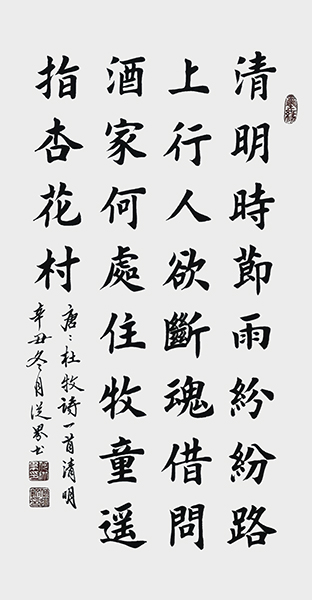 清明時節雨紛紛路
上行人欲斷魂借問
酒家何處住牧童遥
指杏花村
唐:杜牧詩一首清明
辛丑冬月